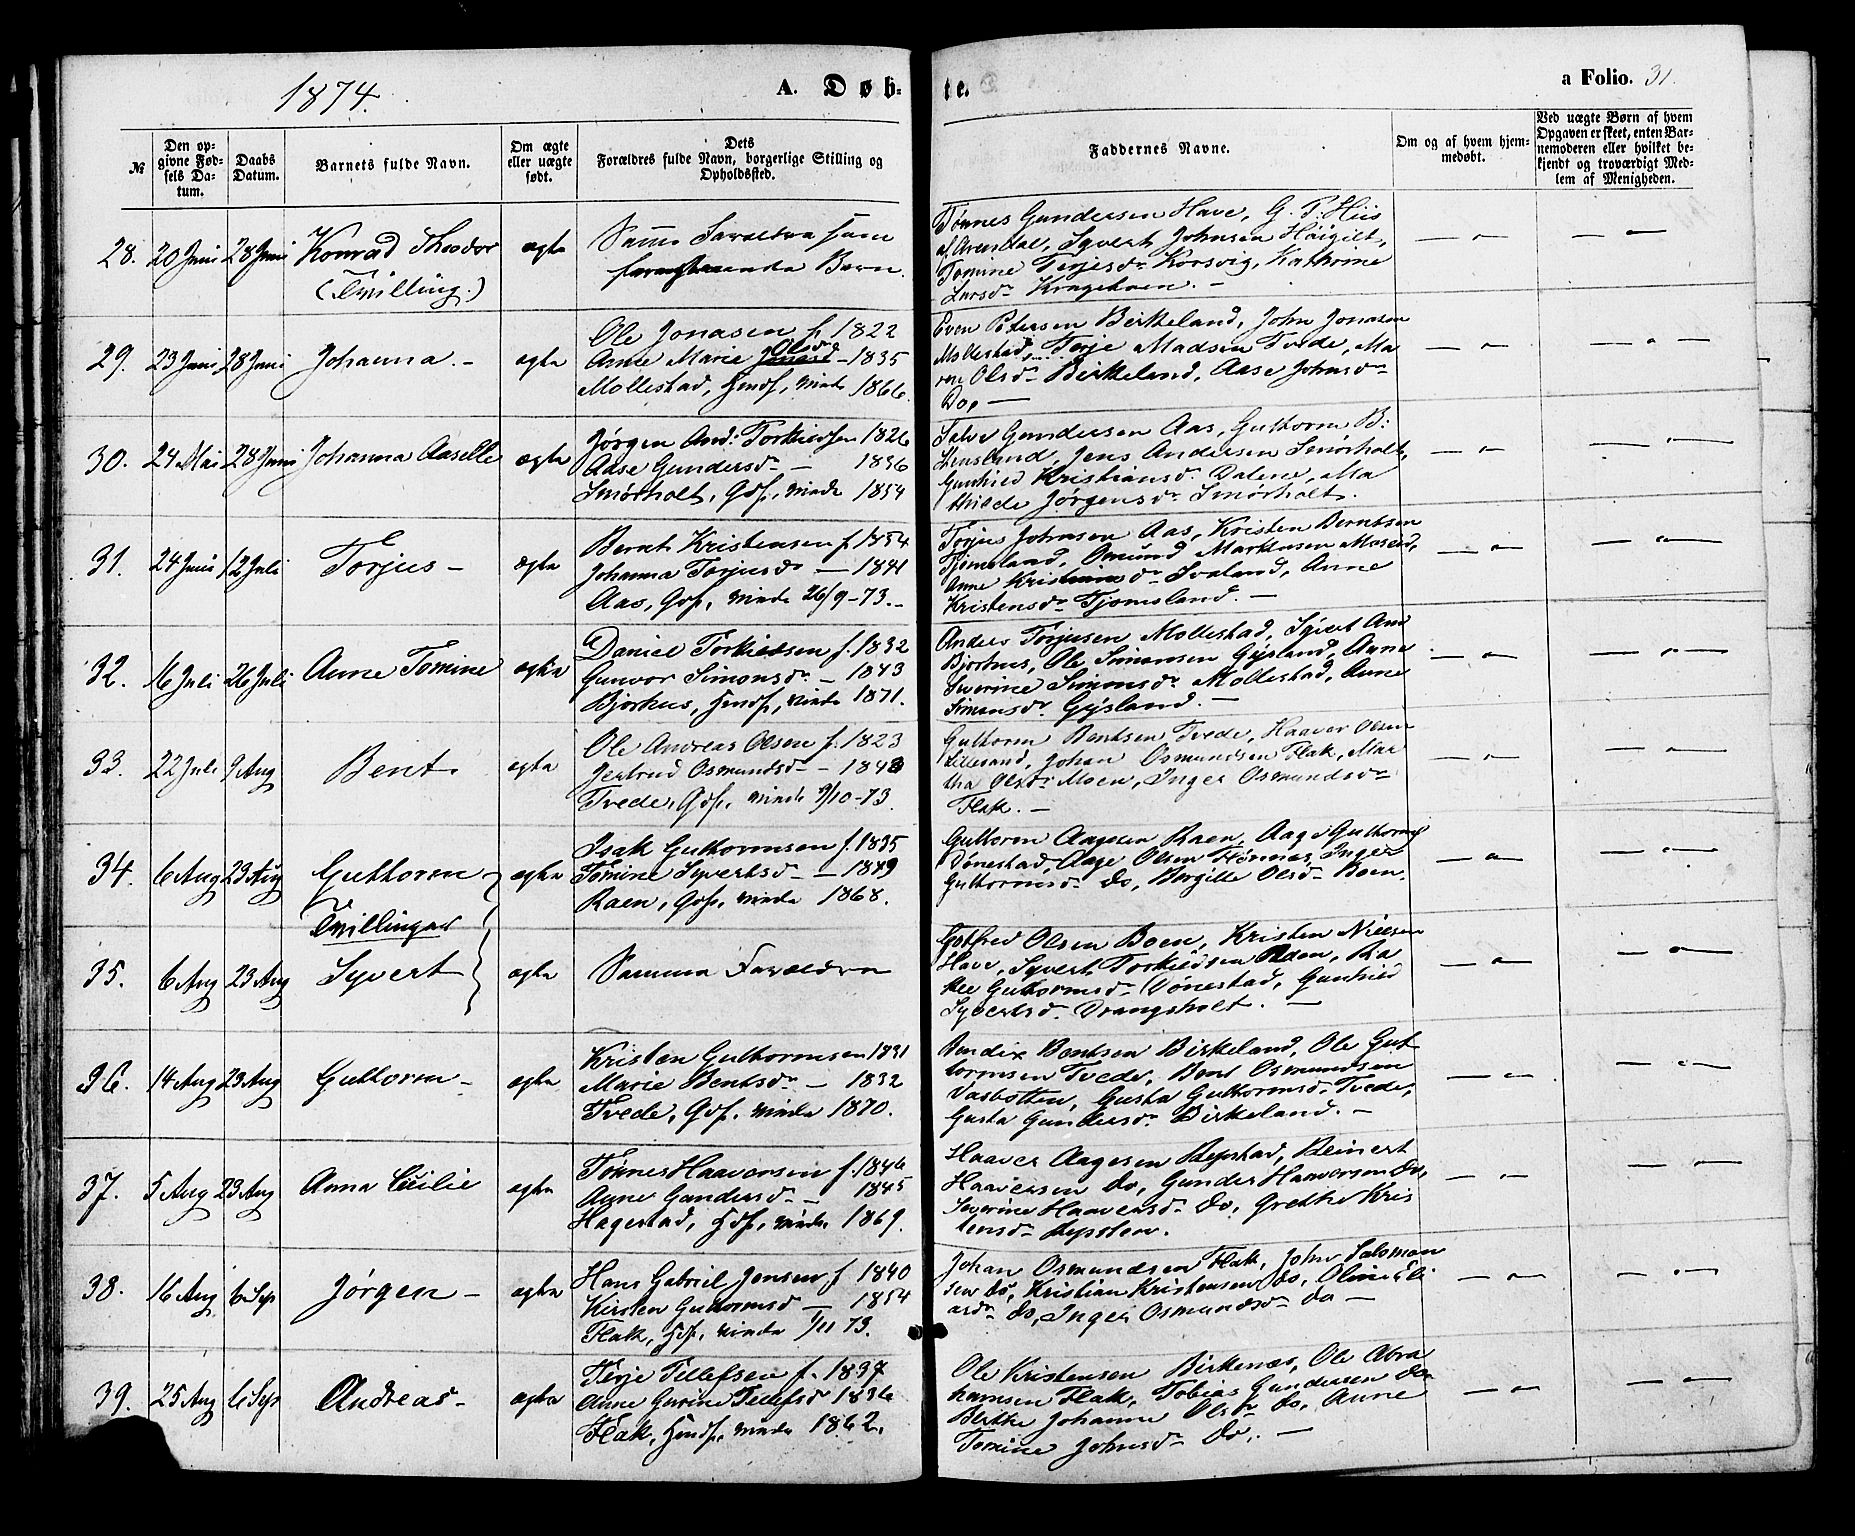 1874.
A. Døb-
te.
a Folio. 31.
№
Den op-
givne Fød-
sels Da-
tum.
Daabs
Datum.
Barnets fulde Navn.
Om ægte
eller uægte
født.
Dets
Forældres fulde Navn, borgerlige Stilling og
Opholdssted.
Faddernes Navne.
Om og af hvem hjem-
medøbt.
Ved uægte Børn af hvem
Opgaven er skeet, enten Bar-
nemoderen eller hvilket be-
kjendt og troværdigt Med-
lem af Menigheden.
28. 20 Juni 28 Juni Konrad Theodor ægte
(Tvilling.)
Samme Forældre som
foregaaende Barn.
Tønnes Gundersen Have, G. P. Hiis
af Arendal, Syvert Johnsen Høigilt,
Tomine Terjesdr Korsvig, Kathrine
Larsdr
29. 23 Juni 28 Juni Johanna - ægte
Ole Jonasen f. 1822
Anne Marie Olsd - 1835
Mollestad, Hmdf, viede 1866.
Even Petersen Birkeland, John Jonasen
Mollestad, Terje Madsen Tvede, Ma
ren Olsdr Birkeland, Aase Johnsdr
Do, -
30. 24 Mai 28 Juni Johanna Aaselle ægte
Jørgen And: Torkildsen 1826
Aase Gundersdr - 1836
Smørholt, Gdf, viede 1854
Salve Gundersen Aas, Guttorm B:
Jens Andersen Smørholt,
Gunhild Kristiansdr Dalene, Ma
thilde Jørgensdr Smørholt.
31. 24 Juni 12 Juli Torjus - ægte
Bernt Kristensen f. 1854
Johanna Torjusdr - 1841
Aas, Gdf, viede 26/9-73. -
Torjus Johnsen Aas, Kristen Berntsen
Tjomsland, Omund Markusen Moseid,
Anne Kristiansdr Svaland, Anne
Kristensdr Tjomsland. -
32. 16 Juli 26 Juli Anne Tomine ægte
Daniel Torkildsen f. 1832
Gunvor Simonsdr - 1843
Bjorhus, Hmdf, viede 1871.
Anders Torjusen Mollestad, Syvert And
Bjorhus, Ole Simonsen Gysland, Anne
Severine Simonsdr Mollestad, Anne
Simonsdr Gysland. -
33. 22 Juli 9 Aug Bent. ægte
Ole Andreas Olsen f. 1823
Jertrud Osmundsdr - 1843
Tvede, Gdf, viede 9/10-73.
Guttorm Bentsen Tvede, Haaver Olsen
Lillesand, Johan Osmundsen Flak, Mar
tha Olsdr Moen, Inger Osmundsdr
Flak. -
34. 6 Aug 23 Aug Guttorm ægte
Tvillinger
Isak Guttormsen f. 1835
Tomine Syvertsdr - 1849
Raen, Gdf, viede 1868.
Guttorm Aagesen Raen, Aage Guttorms
Dønestad, Aage Olsen Tønnes, Inger
Guttormsdr Do, Borgille Olsdr Boen.
35. 6 Aug 23 Aug Syvert ægte
Samme Forældre
Gotfred Olsen Boen, Kristen Nielsen
Have, Syvert Torkildsen Raen, Ra
kel Guttormsdr Dønestad, Gunhild
Syvertsdr Drangsholt. -
36. 14 Aug 23 Aug Guttorm - ægte
Kristen Guttormsen 1831
Marie Bentsdr - 1832
Tvede, Gdf. viede 1870.
Bendix Bentsen Birkeland, Ole Gut
tormsen Tvede, Bent Osmundsen
Vasbotten, Gusta Guttormsdr Tvede,
Gusta Gundersdr Birkeland. -
37. 5 Aug 23 Aug Anna Cecilie ægte
Tønnes Haaversen f. 1846
Anne Gundersdr - 1845
Hagestad, Hdf, viede 1869.
Haaver Aagesen Repstad, Reinert
Haaversen do, Gunder Haaversen do,
Severine Haaversdr do, Grethe Kris
tensdr
38. 16 Aug 6 Sep Jørgen - ægte
Hans Gabriel Jensen f 1840
Kirsten Guttormsd - 1854
Flak, Hdf, viede 1/11 73.
Johan Osmundsen Flak, John Salomon
sen do, Kristian Kristensen do, Oline Eli
asdr do, Inger Osmundsdr do -
39. 25 Aug 6 Sep Andreas - ægte
Terje Tellefsen f. 1837
Anne Gurine Tellefsd 1836
Flak, Hmdf, viede 1862.
Ole Kristensen Birkenes, Ole Abra
hamsen Flak, Tobias Gundersen do
Berthe Johanne Olsdr do, Anne
Tomine Johnsdr do. -